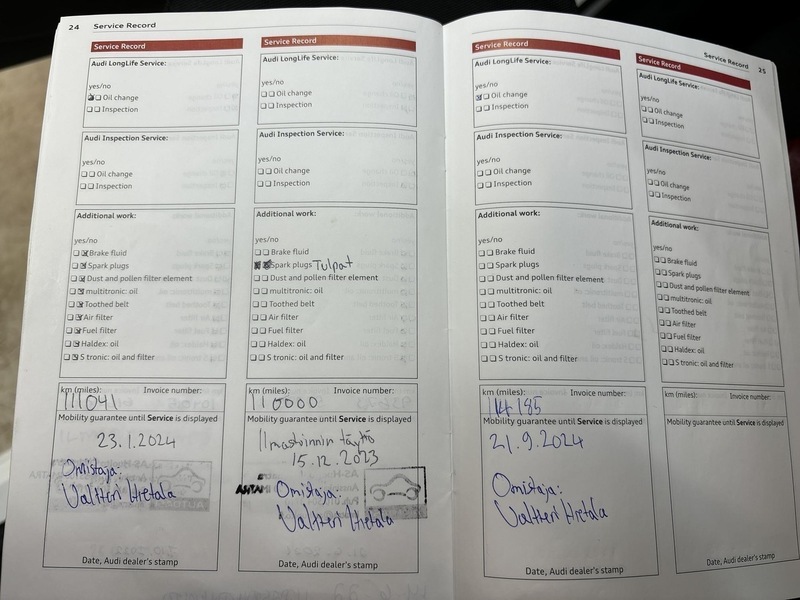 24 Service Record
Service Record
Audi LongLife Service:
yes/no
Oil change
Inspection
Audi Inspection Service:
yes/no
Oil change
Inspection
Additional work:
yes/no
Brake fluid
Spark plugs
Dust and pollen filter element
multitronic: oil
Toothed belt
Air filter
Fuel filter
Haldex: oil
S tronic: oil and filter
km (miles): Invoice number:
111041
Mobility guarantee until Service is displayed
23.1.2024
Omistaja:
Valtteri Hietala
Date, Audi dealer's stamp
Service Record
Audi LongLife Service:
yes/no
Oil change
Inspection
Audi Inspection Service:
yes/no
Oil change
Inspection
Additional work:
yes/no
Brake fluid
Spark plugs Tulpat
Dust and pollen filter element
multitronic: oil
Toothed belt
Air filter
Fuel filter
Haldex: oil
S tronic: oil and filter
km (miles): Invoice number:
110000
Mobility guarantee until Service is displayed
Ilmastoinnin täyttö
15.12.2023
Omistaja:
Valtteri Hietala
Date, Audi dealer's stamp
Service Record
Audi LongLife Service:
yes/no
Oil change
Inspection
Audi Inspection Service:
yes/no
Oil change
Inspection
Additional work:
yes/no
Brake fluid
Spark plugs
Dust and pollen filter element
multitronic: oil
Toothed belt
Air filter
Fuel filter
Haldex: oil
S tronic: oil and filter
km (miles): Invoice number:
114185
Mobility guarantee until Service is displayed
21.9.2024
Omistaja:
Valtteri Hietala
Date, Audi dealer's stamp
Service Record 25
Service Record
Audi LongLife Service:
yes/no
Oil change
Inspection
Audi Inspection Service:
yes/no
Oil change
Inspection
Additional work:
yes/no
Brake fluid
Spark plugs
Dust and pollen filter element
multitronic: oil
Toothed belt
Air filter
Fuel filter
Haldex: oil
S tronic: oil and filter
km (miles): Invoice number:
Mobility guarantee until Service is displayed
Date, Audi dealer's stamp